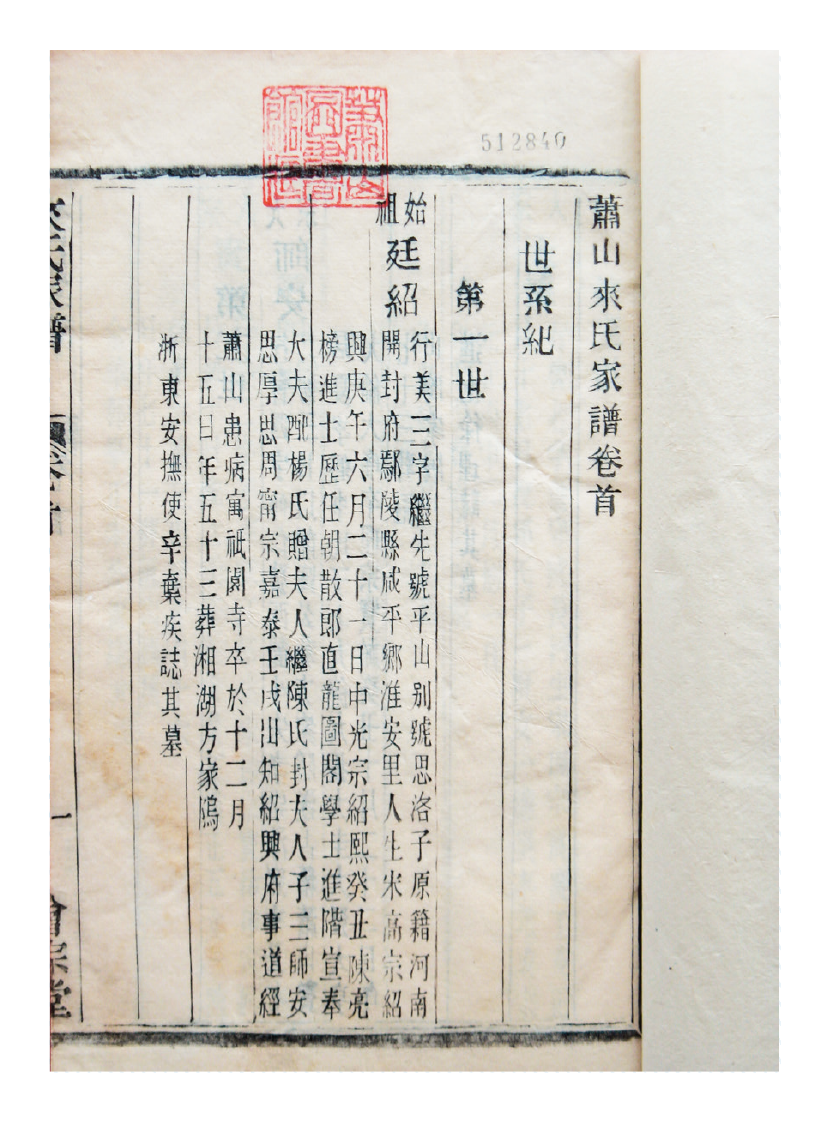 蕭山來氏家譜卷首
世系紀
第一世
始祖
廷紹
行美三字繼先號平山别號思洛子原籍河南
開封府鄢陵縣咸平鄉淮安里人生宋高宗紹
興庚午六月二十一日中光宗紹熙癸丑陳亮
榜進士歷任朝散郎直龍圖閣學士進階宣奉
大夫配楊氏贈夫人繼陳氏封夫人子三師安
思厚思周甯宗嘉泰壬戌出知紹興府事道經
蕭山患病寓祇園寺卒於十二月
十五日年五十三葬湘湖方家隖
浙東安撫使辛棄疾誌其墓
來氏家譜
卷首
一
會宗堂
蕭山圖書館藏
512840